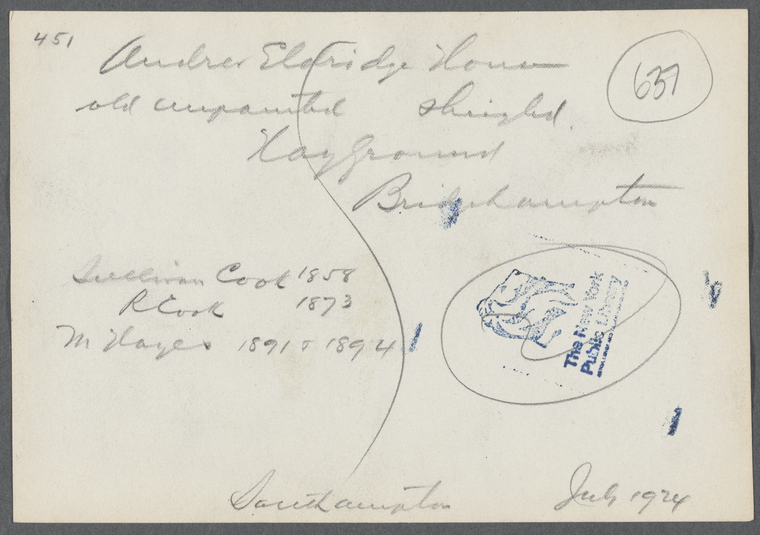 451
Andrew Eldridge House
637
old unpainted shingled.
Hay Ground
Bridgehampton
Sullivan Cook 1858
R Cook 1873
M Hayes 1891 & 1894
The New York
Public Library
Southampton July 1924